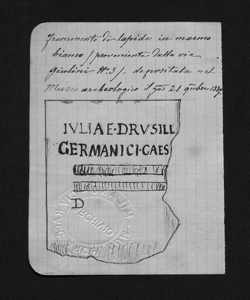 Frammento di lapide in marmo
bianco / proveniente dalla via
Giulini N. 3 /. depositata nel
Museo archeologico il 21
IVLIAE·DRVSILL
GERMANICI·CAES
D